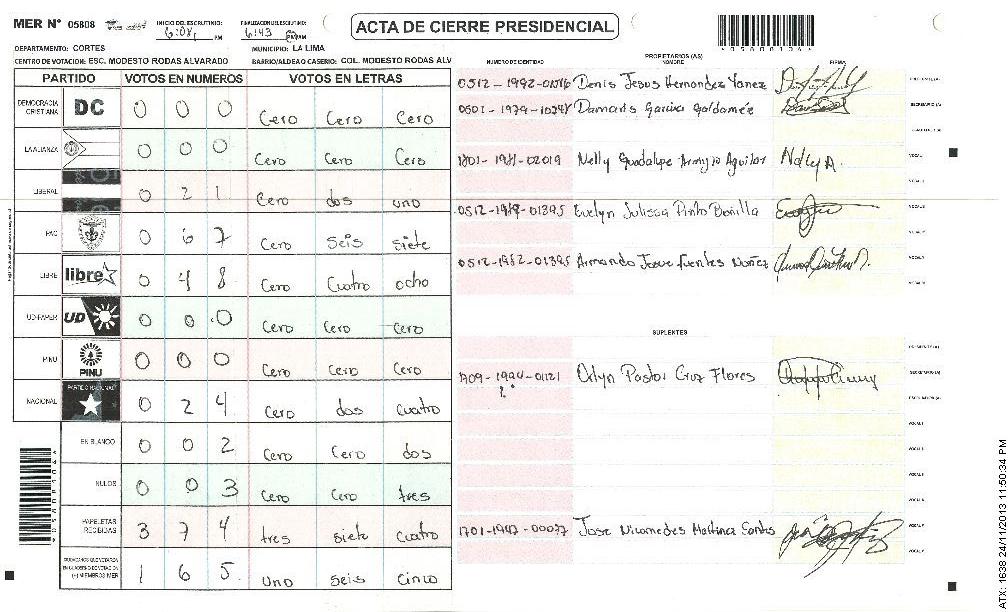 MER Nº 05808
INICIO DEL ESCRUTINIO: 6:08 PM
FINALIZACION DEL ESCRUTINIO: 6:43 PM
ACTA DE CIERRE PRESIDENCIAL
DEPARTAMENTO: CORTES
MUNICIPIO: LA LIMA
CENTRO DE VOTACION: ESC. MODESTO RODAS ALVARADO
BARRIO/ALDEA O CASERIO: COL. MODESTO RODAS ALV
PARTIDO VOTOS EN NUMEROS VOTOS EN LETRAS
DEMOCRACIA CRISTIANA DC 0 0 0 Cero Cero Cero
LA ALIANZA 0 0 0 Cero Cero Cero
LIBERAL 0 2 1 Cero dos uno
PAC 0 6 7 Cero Seis siete
LIBRE libre 0 4 8 Cero Cuatro ocho
UD-FAPER UD 0 0 0 Cero Cero Cero
PINU PINU 0 0 0 Cero Cero Cero
NACIONAL PARTIDO NACIONAL 0 2 4 Cero dos Cuatro
EN BLANCO 0 0 2 Cero Cero dos
NULOS 0 0 3 Cero Cero tres
PAPELETAS RECIBIDAS 3 7 4 tres siete Cuatro
CIUDADANOS QUE VOTARON EN CUADERNO DE VOTACION (+) MIEMBROS MER 1 6 5 Uno Seis Cinco
PROPIETARIOS (AS)
NUMERO DE IDENTIDAD NOMBRE FIRMA
Denis Jesus Hernandez Yanez PRESIDENTE (A)
Damaris Garcia Galdamez SECRETARIO (A)
1801-1981-02019 Nelly Guadalupe Aguilar Nelly A. VOCAL
Evelyn Julissa Pinto Bonilla
0512-1982-01395 Armando Jose fuentes Nuñez
SUPLENTES
PRESIDENTE (A)
Orlyn Pastor Cruz Flores SECRETARIO (A)
Jose Nicomedes Martinez Santos
ATX: 1638 24/11/2013 11:50:34 PM